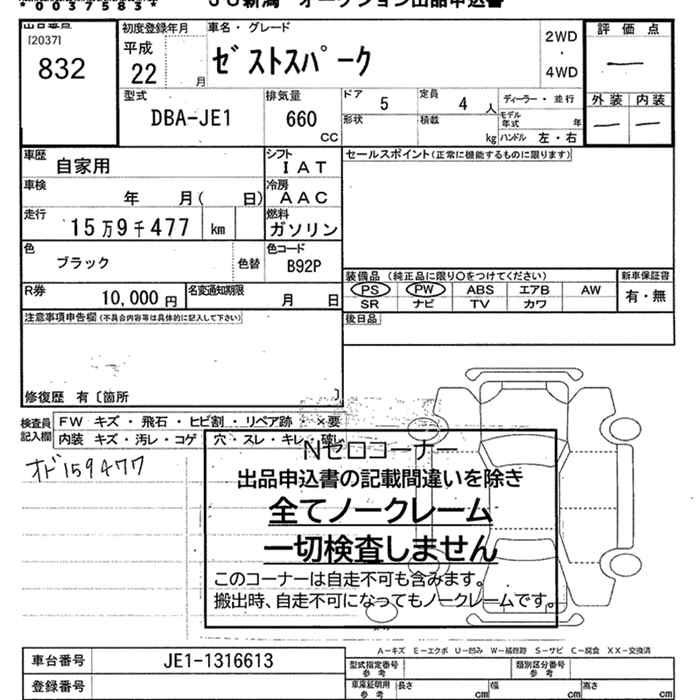 *0037583*
JU新潟 オークション出品申込書
出品番号
[2037]
832
初度登録年月
平成
22
月
車名・グレード
ゼストスパーク
2WD
・
4WD
評価点
—
外装 内装
— —
型式
DBA-JE1
排気量
660
CC
ドア
5
定員
4 人
形状
積載
kg
ディーラー・並行
モデル年式
年
ハンドル 左・右
車歴
自家用
シフト
IAT
車検
年 月( 日)
冷房
AAC
走行
15万9千477 km
燃料
ガソリン
色
ブラック
色替
色コード
B92P
セールスポイント(正常に機能するものに限ります)
装備品 (純正品に限り○をつけてください)
新車保証書
PS PW ABS エアB AW
有・無
SR ナビ TV カワ
R券
10,000 円
名変通知期限
月 日
後日品
注意事項申告欄(不具合内容等は具体的に記入して下さい)
修復歴 有〔箇所 〕
検査員
記入欄
FW キズ・飛石・ヒビ割・リペア跡・×要
内装 キズ・汚レ・コゲ・穴・スレ・キレ・破レ
オド159477
Nゼロコーナー
出品申込書の記載間違いを除き
全てノークレーム
一切検査しません
このコーナーは自走不可も含みます。
搬出時、自走不可になってもノークレームです。
A-キズ E-エクボ U-凹み W-補修跡 S-サビ C-腐食 XX-交換済
車台番号
JE1-1316613
型式指定番号
参考
類別区分番号
参考
登録番号
車庫証明用
参考
長さ cm
幅 cm
高さ cm